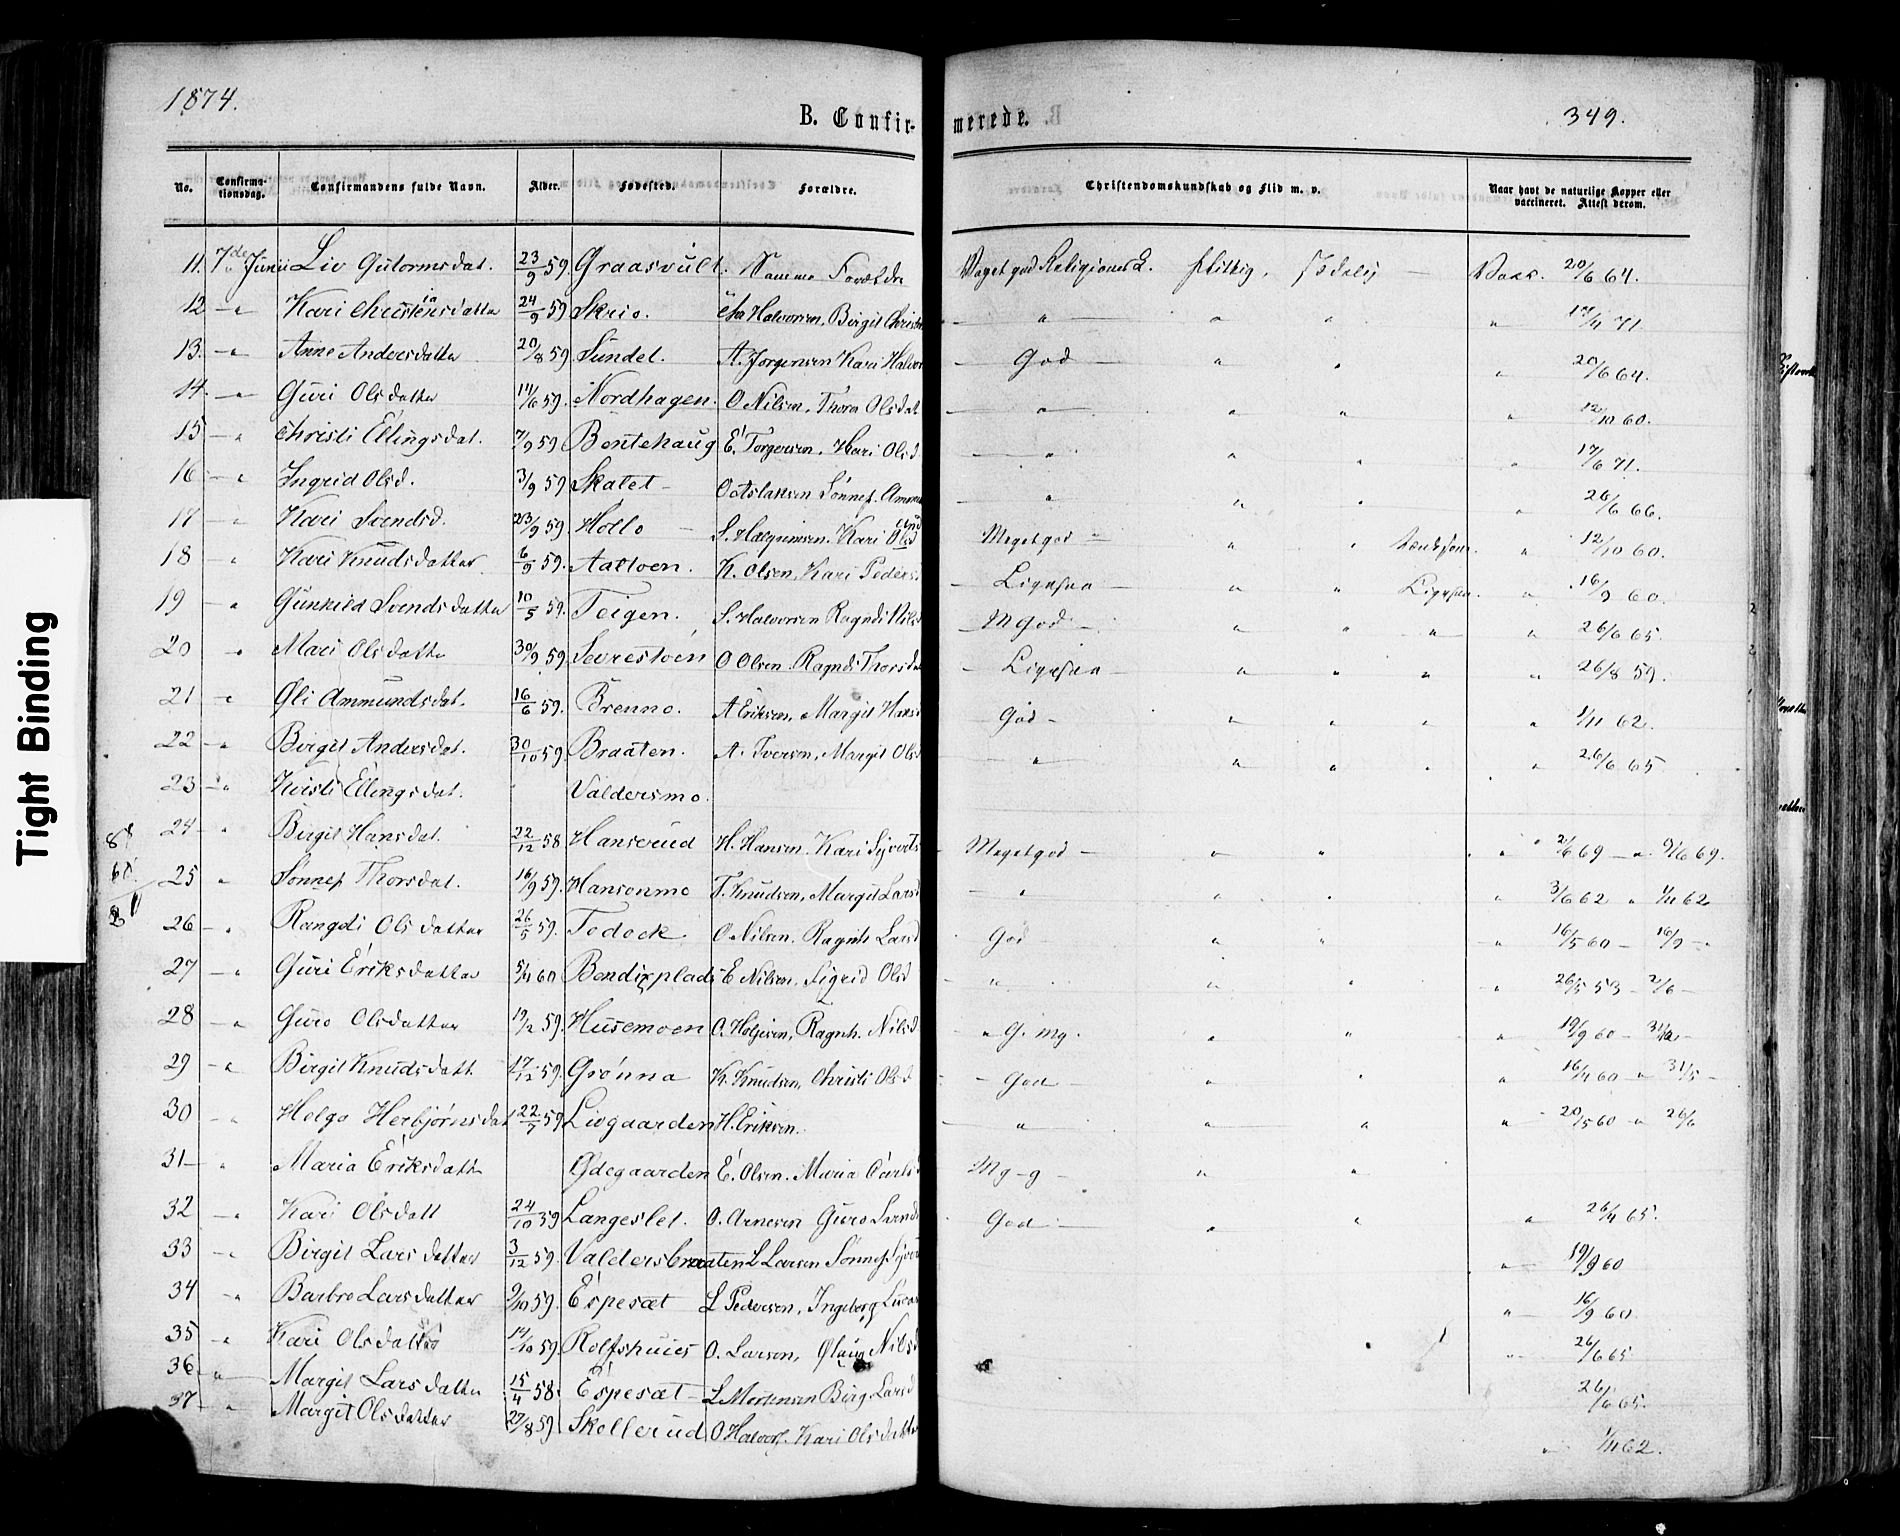 1874.
B. Confirmerede.
349.
No. Confirmationsdag. Confirmandens fulde Navn. Alder. Fødested. Forældre. Christendomskundskab og Flid m. v. Naar havt de naturlige Kopper eller vaccineret. Attest derom.
11. 7de Junii Liv Gutormsdat. 23/9 59. Graasvult. Samme Forældre Meget god Religions flittig. 20/6 64.
12 — " Kari Christensdatter 24/9 59 Skrio. Halvorsen, Birgit " " " " 71.
13. — " Anne Andersdatter 20/8 59 Sundet. A. Jorgensen Kari Halvor — God — " " " 20/6 64.
14. — " Guri Olsdatter 59. Nordhagen. O Nilsen, Thora Olsdat " " " " 12/10 60.
15 — " Christi Ellingsdat. 7/9 59 Bentehaug E. Torgersen. Kari Olsd " " " " 17/6 71.
16 — " Ingrid Olsd. 3/9 59 Skalet — Sønnef. " " " " 26/6 66.
17 " Kari Svendsd. 23/9 59. Hollo — S. Kari Olsd Meget god " " " 12/10 60.
18 " Kari Knudsdatter 6/9 59. Aaltoen. K. Olsen, Kari Peders — Ligesaa — " " Ligesaa. " 16/9 60.
19 — " Gunhild Svendsdatter 10/5 59. Teigen. S. Halvorsen Ragndi Nilsd — M God — " " " " 26/6 65.
20 " Mari Olsdatter 30/9 59. Sevrestøen O Olsen. Ragndi Thorsdat — Ligesaa — " " " " 26/8 59.
21 — " Oli Ammundsdat. 16/6 59. Brenno. A Eriksen, Margit Hans God — " " " " 1/11 62.
22 — " Birgit Andersdat. 30/10 59. Braaten. A. Iversen, Margit Olsd " " " " " 26/6 65
23 — " Kirsti Ellingsdat. Valdersmo.
24 — " Birgit Hansdat. 22/12 58 Hanserud H. Hansen. Kari Syverts Meget god — " " " 69 — " 69.
25 " Sønnef Thorsdat. 16/9 59. Hansenmo T. Knudsen, Margit Lars " " " " 3/6 62 " 1/11 62
26 — " Rangdi Olsdatter 26/5 59. Todock. O Nilsen. Ragnh. Larsd God " " " 16/5 60 — 16/9 — "
27 — " Guri Eriksdatter 60 Bendixplads E Nilsen, Sigrid Olsd " " " " 26/5 53 — 2/6 —
28 — " Guro Olsdatter 59. Husemoen O. Holgersen, Ragnh. Nilsd " G. mg. " " " 19/9 60 —
29 — " Birgit Knudsdatt 17/12 59. Grønna K. Knudsen, Christi Olsd — God — " " " 60 — " 31/5 —
30 — " Helga Herbjørnsdat 22/7 59 Livgaarden H. Eriksen. " " " " 20/5 60 — " 26/6
31 — " Maria Eriksdatt Ødegaarden E. Olsen. Maria Mg-g — " "
32 — " Kari Olsdatt 24/10 59 Langeslet. O. Arnesen Guro God — " " " 65.
33 — " Birgit Larsdatter 3/12 59. Valdersbraaten L Larsen Sønnef " 19/9 60
34 — " Barbro Larsdatter 9/10 59. Espesæt L Pedersen, Ingeborg " 16/9 60
35 — " Kari Olsdatter 14/10 59. Rolfshuies O. Larsen, Olaug Nilsd " 26/6 65
36 — " Margit Larsdatter 15/4 58. Espesæt — L Mortensen Birg. Larsd 26/6 65.
37 — " Margit Olsdatter 27/8 59 Skollerud O Halvors. Kari Olsdatter " 1/11 62.
Tight Binding